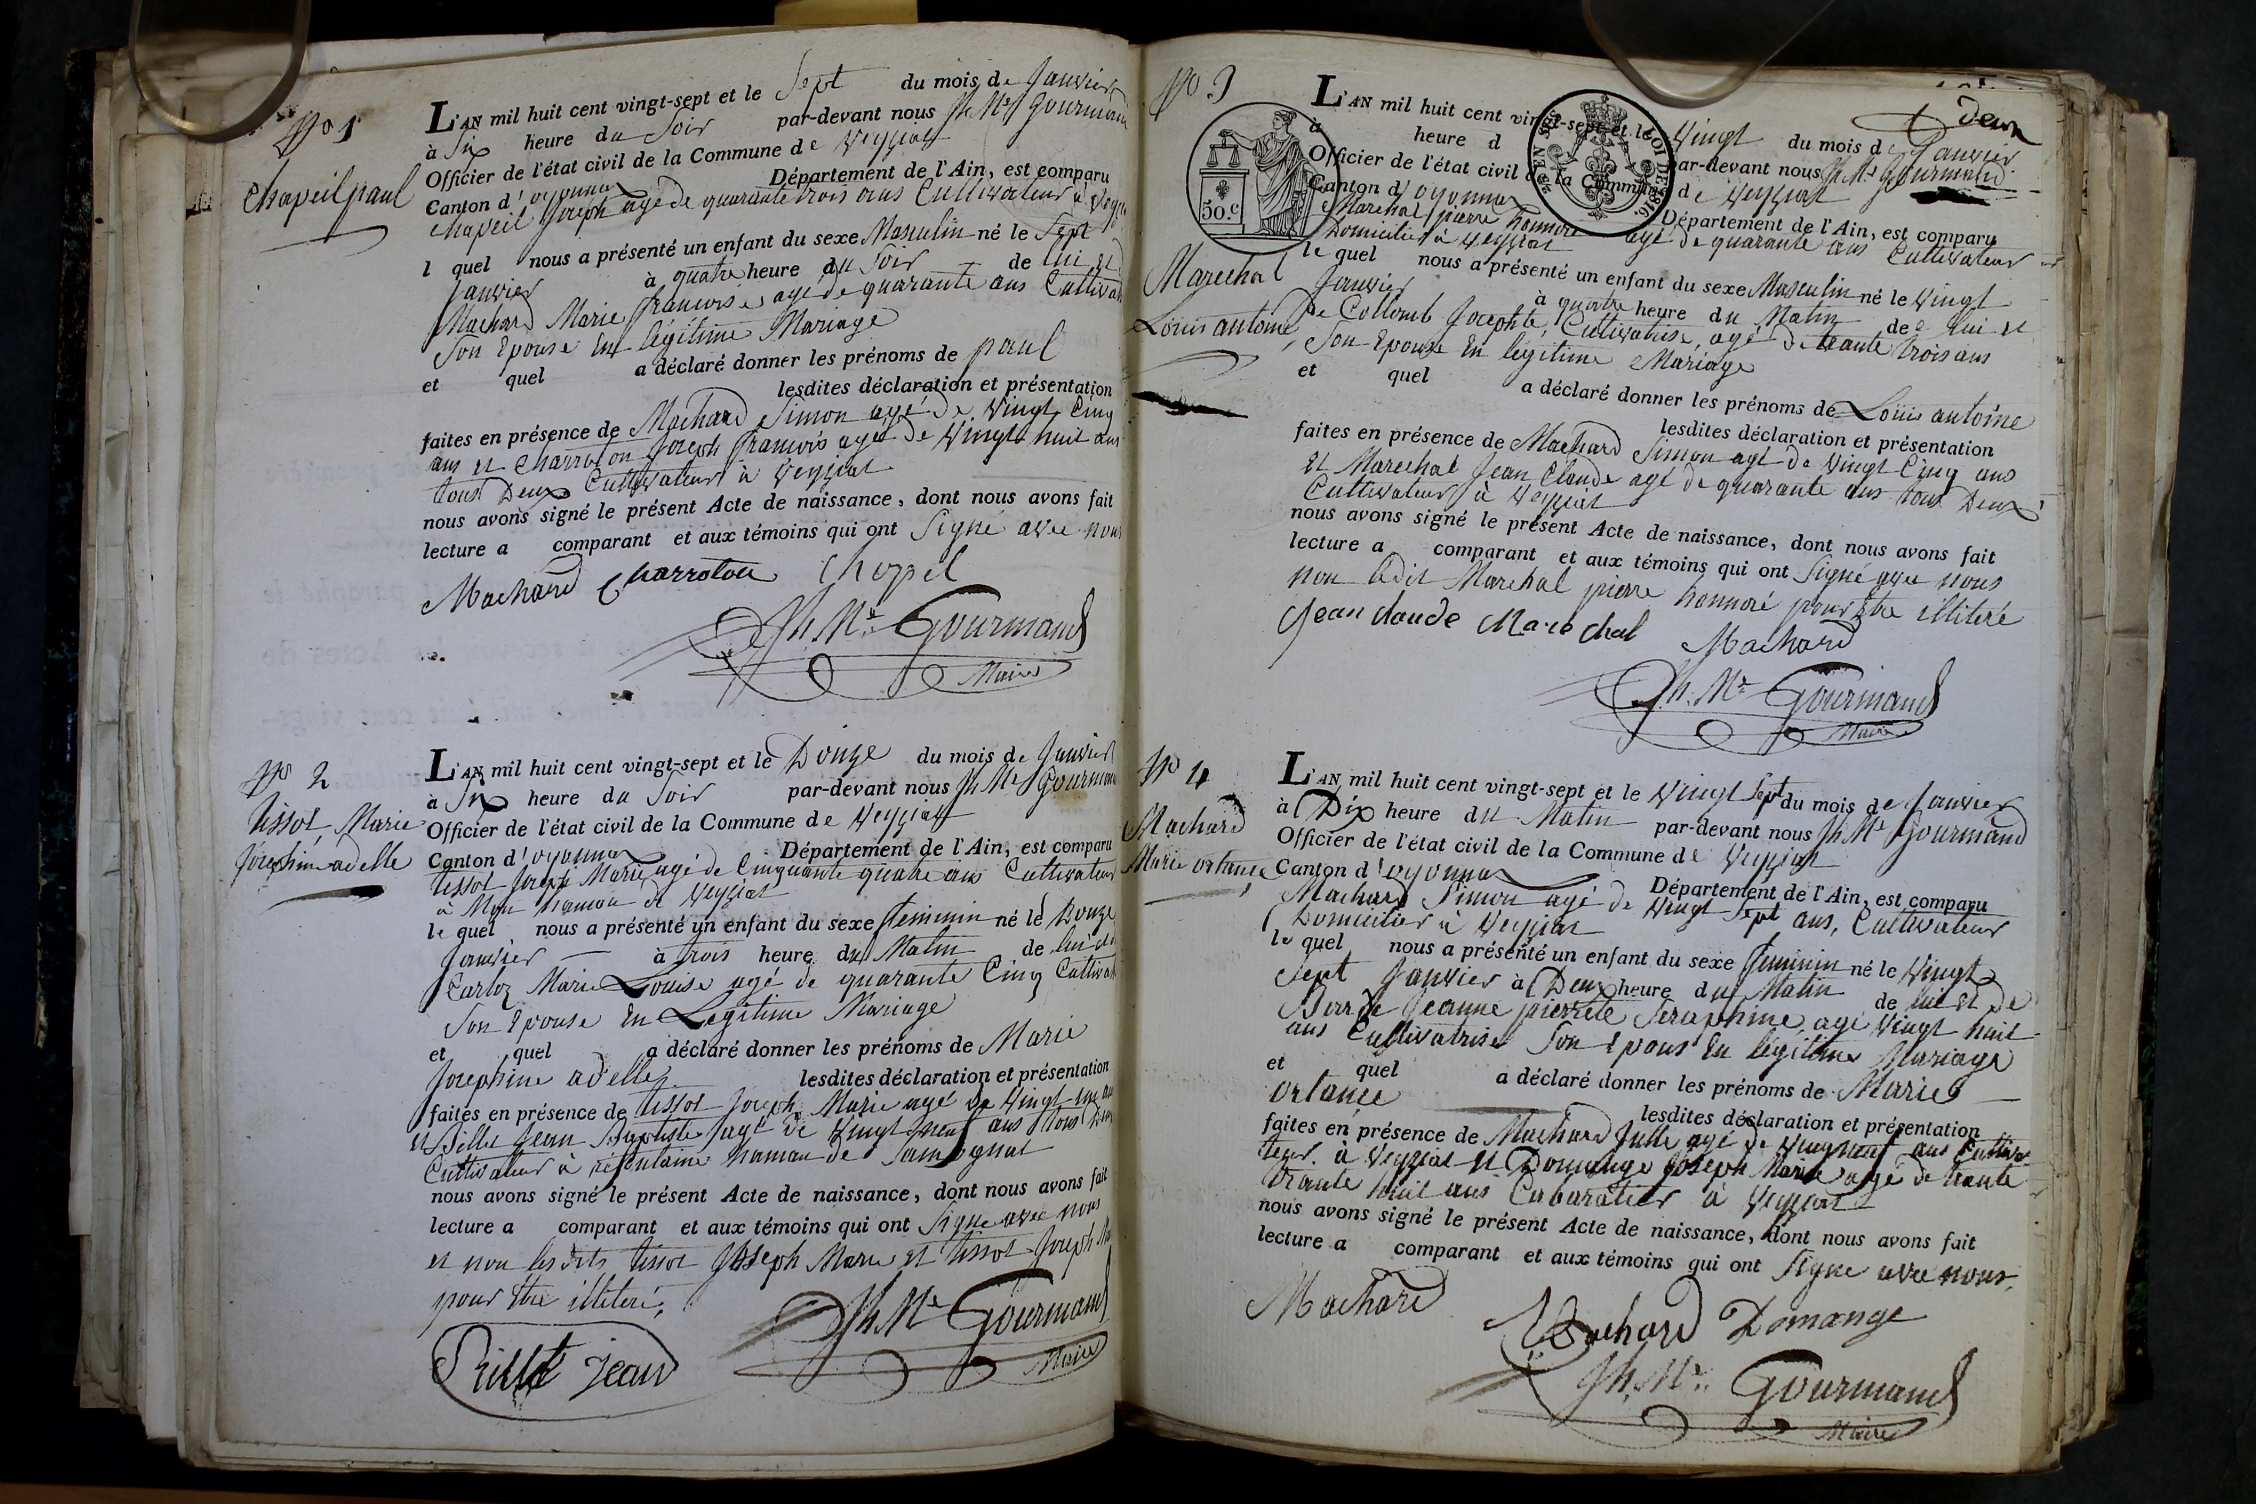 No 1
chapeil paul
L'AN mil huit cent vingt-sept et le Sept du mois de Janvier
à Six heure du Soir par-devant nous Jh Me Gourmand
Officier de l'état civil de la Commune de Veyziat
Canton d'oyonnax Département de l'Ain, est comparu
chapeil Joseph agé de quarante trois ans Cultivateur à
l quel nous a présenté un enfant du sexe Masculin né le Sept
Janvier à quatre heure du Soir de lui et
Machard Marie françoise agé de quarante ans
Son Epouse En légitime Mariage
et quel a déclaré donner les prénoms de paul
lesdites déclaration et présentation
faites en présence de Machard Simon agé de Vingt Cinq
ans et Charroton Joseph françois agé de Vingt huit ans
tous Deux Cultivateurs à Veyziat
nous avons signé le présent Acte de naissance, dont nous avons fait
lecture a comparant et aux témoins qui ont Signé avec nous
Machard Charroton Chapel
Jh. Me Gourmand
Maire
No 2
tissot, Marie
Josephine adelle
L'AN mil huit cent vingt-sept et le Douze du mois de Janvier
à Six heure du Soir par-devant nous Jh Me Gourmand
Officier de l'état civil de la Commune de Veyziat
Canton d'oyonnax Département de l'Ain, est comparu
tissot Joseph Marie agé de Cinquante quatre ans Cultivateur
à hamau de Veyziat
le quel nous a présenté un enfant du sexe feminin né le Douze
Janvier à trois heure du Matin de lui et
Carloz Marie Louise agé de quarante Cinq
Son Epouse En Legitime Mariage
et quel a déclaré donner les prénoms de Marie
Josephine adelle lesdites déclaration et présentation
faites en présence de tissot Joseph Marie agé de Vingt
et Billet Jean Baptiste agé de Vingt neuf ans tous Deux
Cultivateur à hamau de Samognat
nous avons signé le présent Acte de naissance, dont nous avons fait
lecture a comparant et aux témoins qui ont Signe avec nous
et non les dits tissot Joseph Marie et tissot Joseph
pour être illiteré,
Jean
Jh. Me Gourmand
Maire
No 3
Deux
50.C
LOI DE 1816.
Marechal
Louis antoine
L'AN mil huit cent vingt-sept et le Vingt du mois de Janvier
à heure d par-devant nous Jh Me Gourmand
Officier de l'état civil de la Commune de Veyziat
Canton d'oyonnax Département de l'Ain, est comparu
Marechal pierre honnoré agé de quarante ans Cultivateur
Domicilier à Veyziat
le quel nous a présenté un enfant du sexe Masculin né le Vingt
Janvier à quatre heure du Matin de lui et
De Collomb Josephte, Cultivatrise, agé de trante trois ans
Son Epouse En légitime Mariage
et quel a déclaré donner les prénoms de Louis antoine
lesdites déclaration et présentation
faites en présence de Machard Simon agé de Vingt Cinq ans
Et Marechal Jean Claude agé de quarante ans tous Deux
Cultivateurs à Veyziat
nous avons signé le présent Acte de naissance, dont nous avons fait
lecture a comparant et aux témoins qui ont Signé avec nous
non ledit Marechal pierre honnoré pour être illiteré
Jean claude Marechal
Machard
Jh. Me Gourmand
Maire
No 4
Machard
Marie ortance
L'AN mil huit cent vingt-sept et le Vingt Sept du mois de Janvier
à Dix heure du Matin par-devant nous Jh Me Gourmand
Officier de l'état civil de la Commune de Veyziat
Canton d'oyonnax Département de l'Ain, est comparu
Machard Simon agé de Vingt Sept ans, Cultivateur
Domicilier à Veyziat
le quel nous a présenté un enfant du sexe feminin né le Vingt
Sept Janvier à Deux heure du Matin de lui et de
Jeanne pierrete Seraphine agé Vingt huit
ans Cultivatrise Son Epouse En légitime Mariage
et quel a déclaré donner les prénoms de Marie
ortance lesdites déclaration et présentation
faites en présence de Machard Julle agé de ans Cultiva
teur à Veyziat et Domange Joseph Marie agé de trante
huit ans Cabaratier à Veyziat
nous avons signé le présent Acte de naissance, dont nous avons fait
lecture a comparant et aux témoins qui ont Signe avec nous.
Machard
Machard Domange
Jh. Me Gourmand
Maire